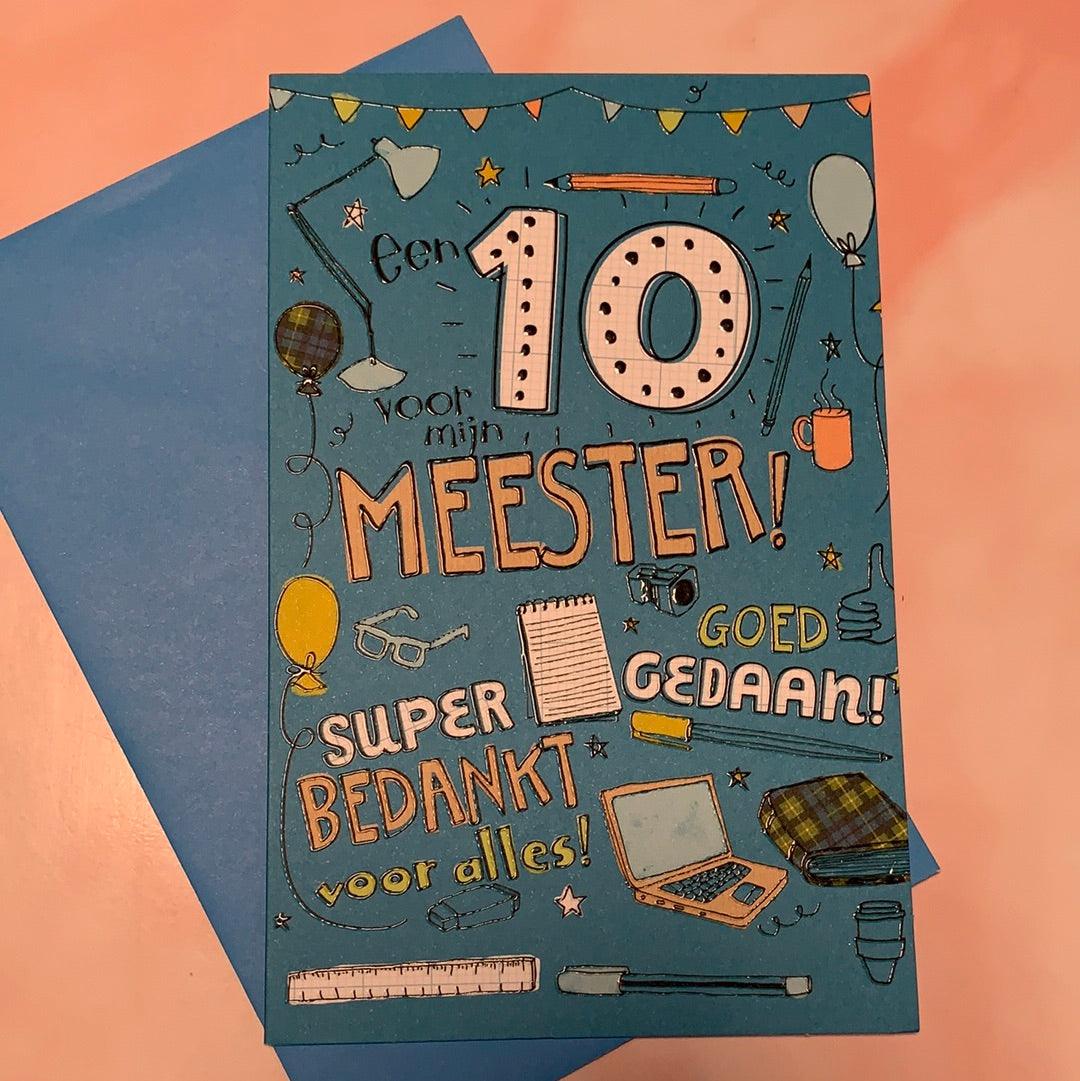 een 10
voor
mijn
MEESTER!
GOED
GEDAAN!
SUPER
BEDANKT
voor alles!